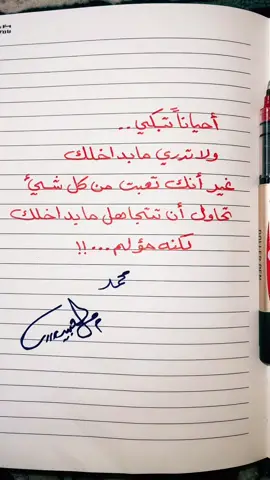 أحياناً تبكي..
ولا تدري ما بداخلك
غير أنك تعبت من كل شيءٍ
تحاول أن تتجاهل ما بداخلك
لكنه مؤلم...!!
محمد